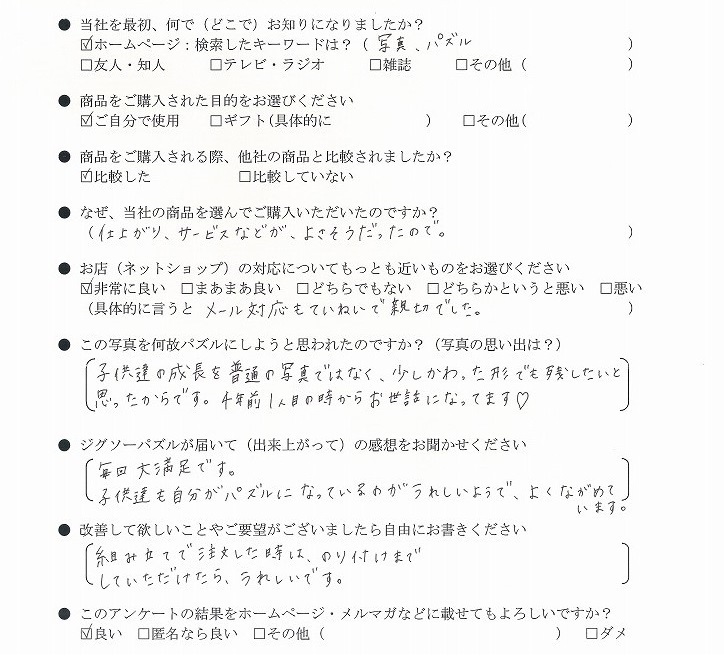 ● 当社を最初、何で（どこで）お知りになりましたか？
☑ホームページ：検索したキーワードは？（ 写真、パズル ）
□友人・知人 □テレビ・ラジオ □雑誌 □その他（ ）
● 商品をご購入された目的をお選びください
☑ご自分で使用 □ギフト(具体的に ) □その他( )
● 商品をご購入される際、他社の商品と比較されましたか？
☑比較した □比較していない
● なぜ、当社の商品を選んでご購入いただいたのですか？
（仕上がり、サービスなどが、よさそうだったので。 ）
● お店（ネットショップ）の対応についてもっとも近いものをお選びください
☑非常に良い □まあまあ良い □どちらでもない □どちらかというと悪い □悪い
（具体的に言うと メール対応もていねいで親切でした。 ）
● この写真を何故パズルにしようと思われたのですか？（写真の思い出は？）
子供達の成長を普通の写真ではなく、少しかわった形でも残したいと
思ったからです。4年前1人目の時からお世話になってます♡
● ジグソーパズルが届いて（出来上がって）の感想をお聞かせください
毎回大満足です。
子供達も自分がパズルになっているのがうれしいようで、よくながめて
います。
● 改善して欲しいことやご要望がございましたら自由にお書きください
組み立てで注文した時は、のり付けまで
していただけたら、うれしいです。
● このアンケートの結果をホームページ・メルマガなどに載せてもよろしいですか？
☑良い □匿名なら良い □その他（ ） □ダメ